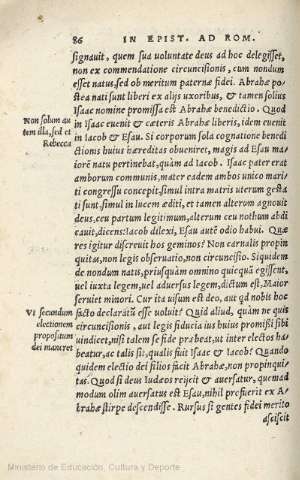 86 IN EPIST. AD ROM.
signauit, quem sua voluntate deus ad hoc delegisset,
non ex commendatione circuncisionis, cum nondum
esset natus, sed ob meritum paternæ fidei. Abrahæ po=
stea nati sunt liberi ex alijs uxoribus, & tamen solius
Isaac nomine promissa est Abrahæ benedictio. Quod
Non solum au
tem illa, sed et
Rebecca
in Isaac euenit & cæteris Abrahæ liberis, idem euenit
in Iacob & Esau. Si corporum sola cognatione benedi
ctionis huius hæreditas obueniret, magis ad Esau ma=
iorē natu pertinebat, quàm ad Iacob. Isaac pater erat
amborum communis, mater eadem ambos unico mari=
ti congressu concepit, simul intra matris uterum gesta
ti sunt, simul in lucem æditi, et tamen alterum agnouit
deus, ceu partum legitimum, alterum ceu nothum abdi
cauit, dicens: Iacob dilexi, Esau autē odio habui. Quæ
res igitur discreuit hos geminos? Non carnalis propin
quitas, non legis obseruatio, non circuncisio. Siquidem
de nondum natis, priusquàm omnino quicquā egissent,
uel iuxta legem, uel aduersus legem, dictum est, Maior
seruiet minori. Cur ita uisum est deo, aut qd nobis hoc
Vt secundum
electionem
propositum
dei maneret
facto declaratū esse uoluit? Quid aliud, quàm ne quis
circuncisionis, aut legis fiducia ius huius promissi sibi
uindicet, nisi talem se fide præbeat, ut inter electos ha=
beatur, ac talis sit, qualis fuit Isaac & Iacob? Quando
quidem electio dei filios facit Abrahæ, non propinqui=
tas. Quod si deus Iudæos reijcit & auersatur, quemad
modum olim auersatus est Esau, nihil profuerit ex A=
brahæ stirpe descendisse. Rursus si gentes fidei merito
asciscit
Ministerio de Educación, Cultura y Deporte